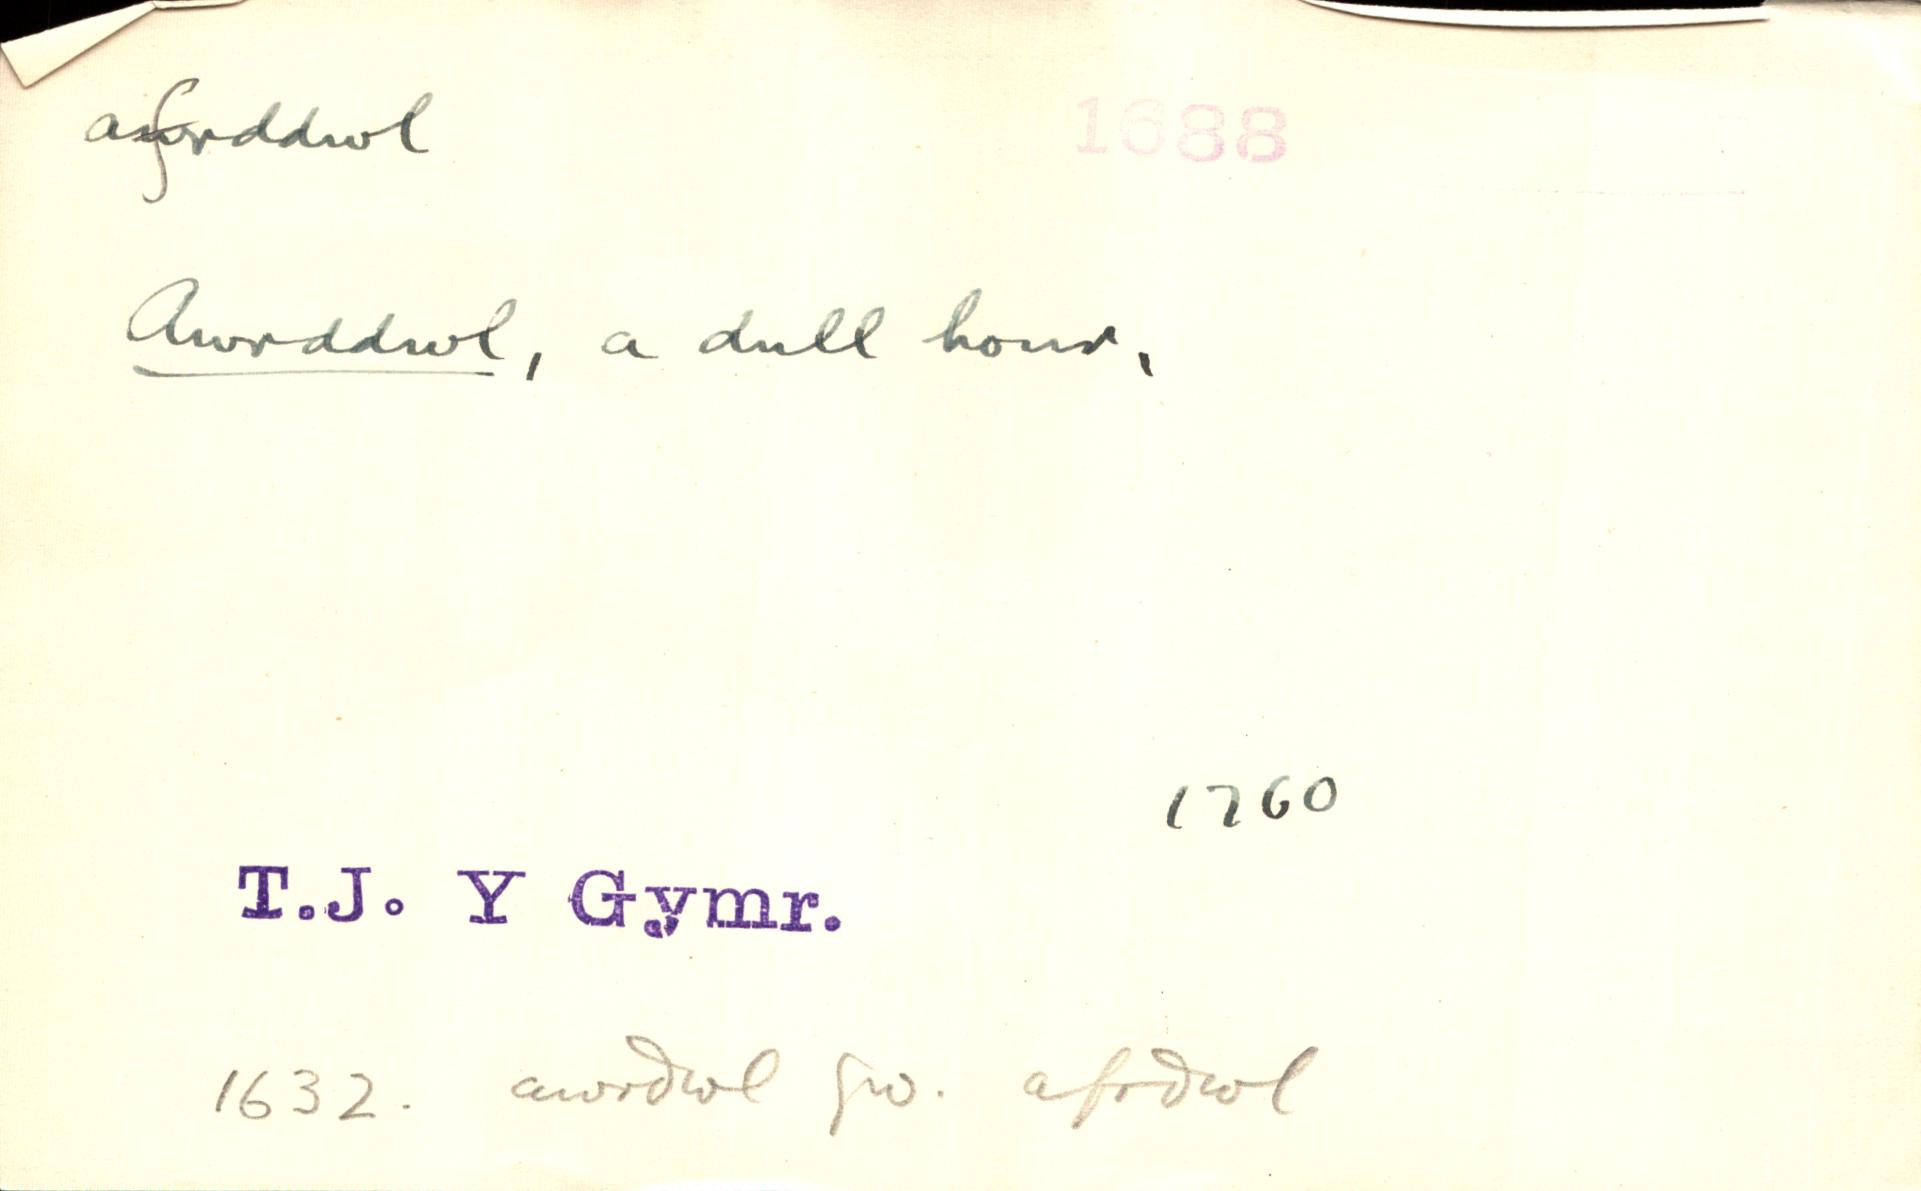 afrddwl 1688
Awrddwl, a dull hour,
1760
T.J. Y Gymr.
1632. awrdwl gw. afrdwl